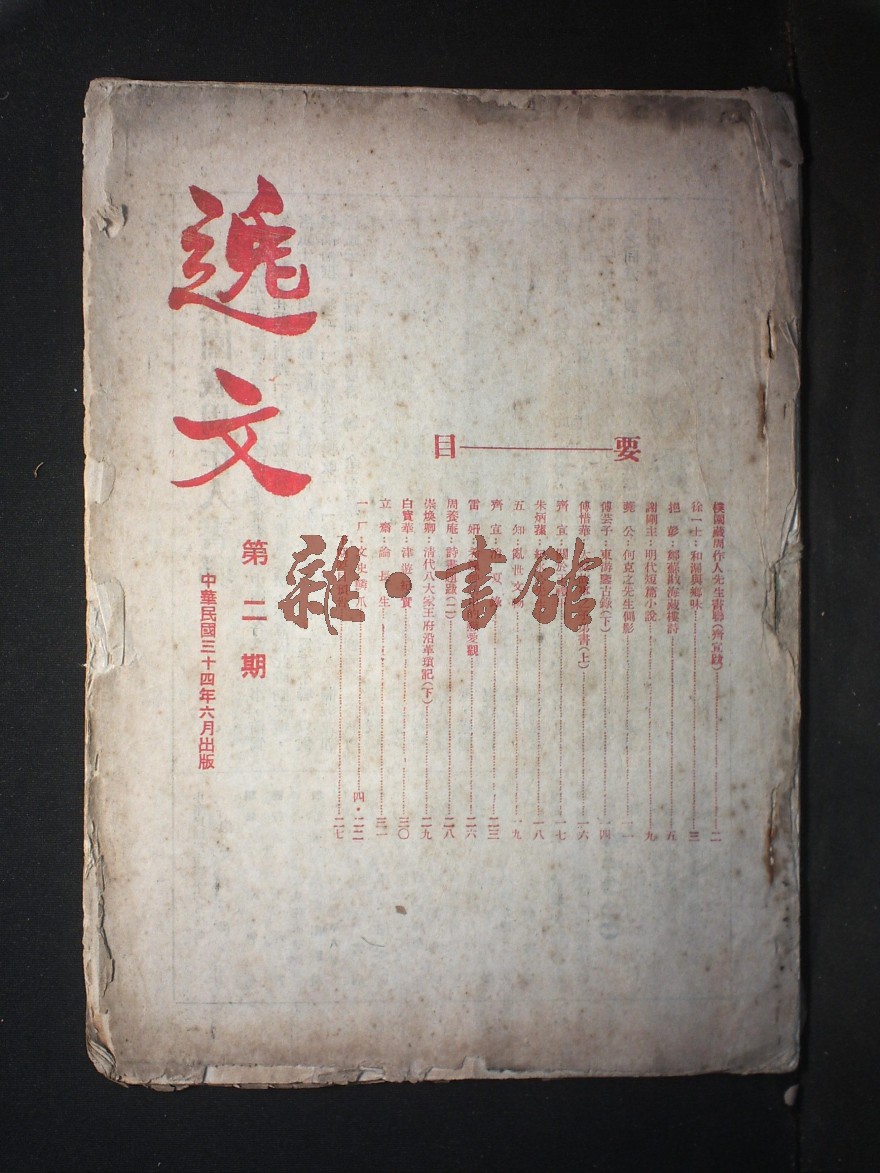 逸文
第二期
中華民國三十四年六月出版
要——目
樸園藏周作人先生書聯(齊宣跋)……二
徐一士:和濕與鄉味……三
挹彭:鄭蘇戡海藏樓詩……五
謝剛主:明代短篇小說……九
蕘公:何克之先生側影……一一
傅芸子:東游鑒古錄(下)……一四
傅惜華:書(上)……一六
齊宣:……一七
朱炳蓀:……一八
五知:亂世……一九
齊宣:……二三
雷妍:愛觀……二六
周養庵:詩畫題跋(二)……二八
崇煥卿:清代八大家王府沿革瑣記(下)……二九
白寶華:津……實……三〇
立齋:論長生……三一
一厂:文史……爪……四·二二
……二七
雜·書館